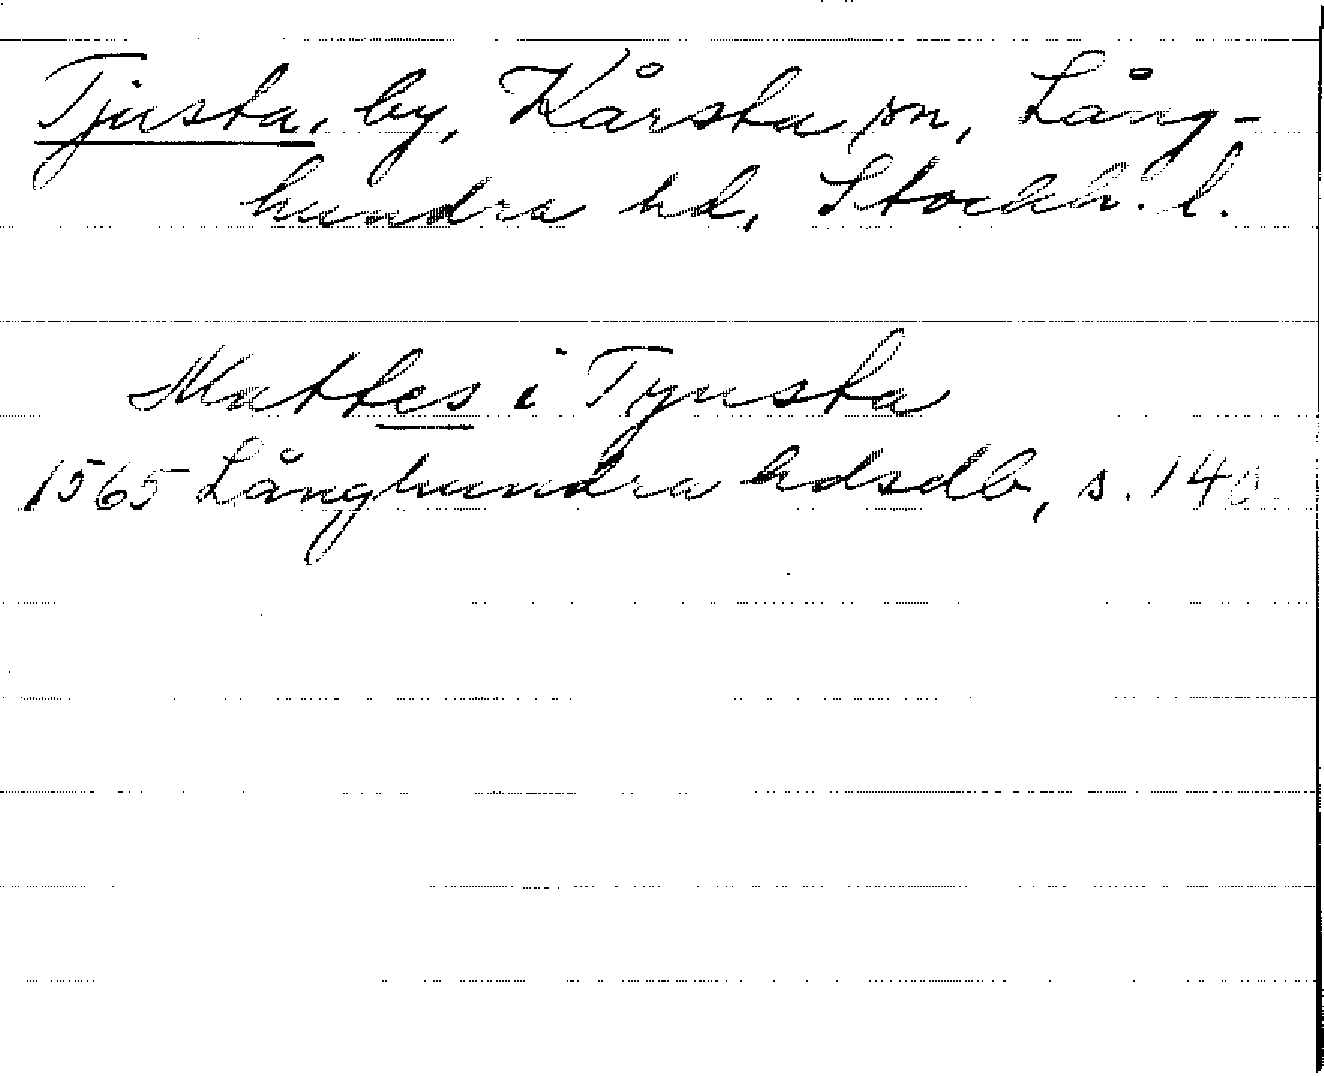 Tjusta, by, Kårsta sn, Lång-
hundra hd, Stockh. l.
Mattes i Tyusta
1565 Långhundra hdsdb, s. 140.